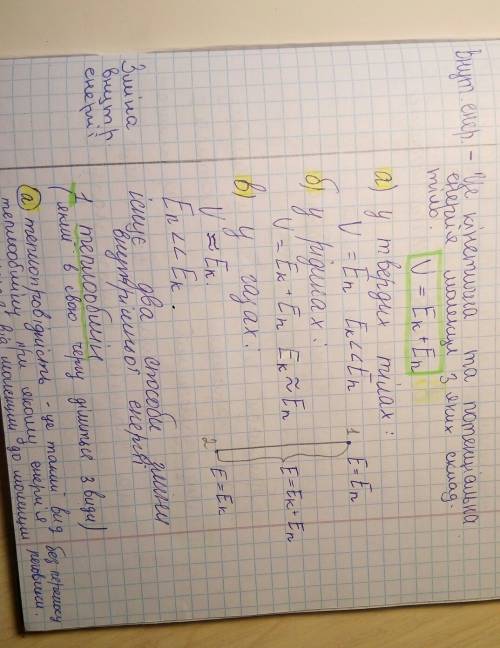 внут. енер. - це кінетична та потенціальна
енергія молекул з яких склад.
тіло.
V = Eк + Eп
а) у твердих тілах:
V = Eп Eк << Eп
б) у рідинах:
V = Eк + Eп Eк ≈ Eп
в) у газах:
V ≈ Eк.
Eп << Eк.
1 E = Eп
E = Eк + Eп
2 E = Eк
Зміна
внутр
енергії
існує два способи зміни
внутрішньої енергії
1. теплообмін
(який в свою чергу ділиться 3 види)
а) теплопровідність - це такий вид
теплообміну при якому енергія
від молекули до молекули без переносу
речовини.